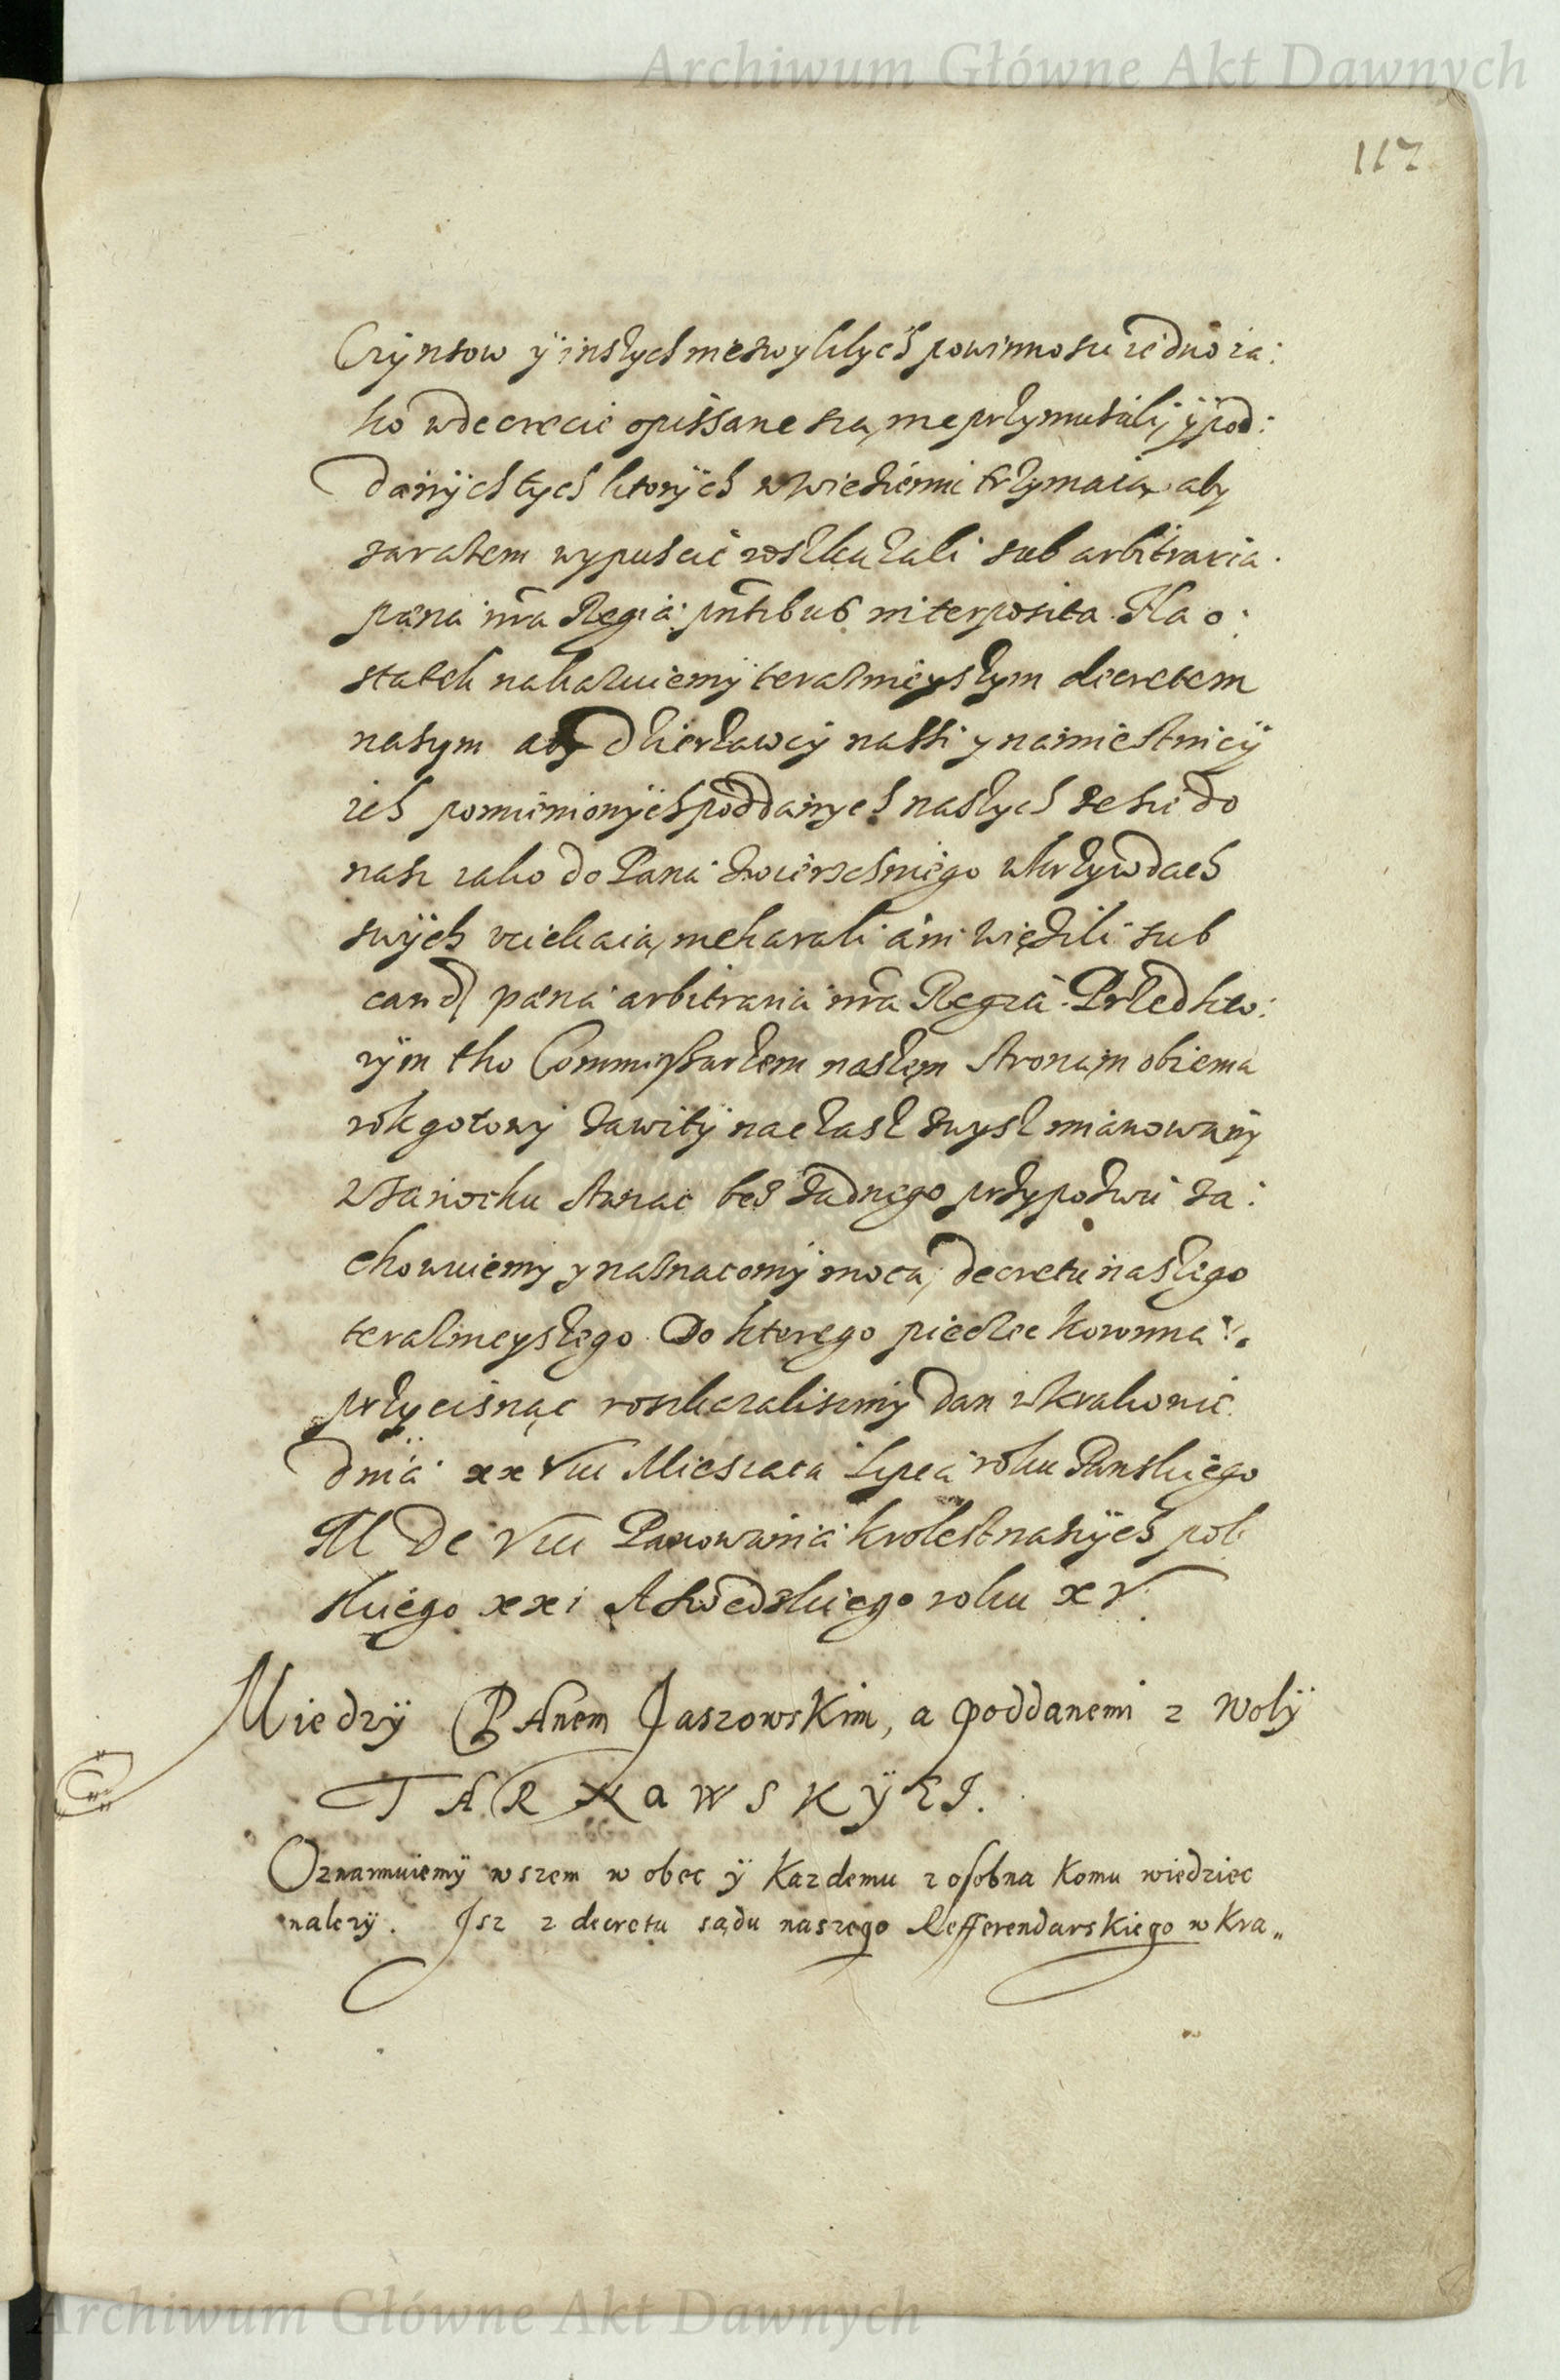 Archiwum Główne Akt Dawnych
117
Czynsow ÿ inszych niezwyklych powinnosci iedno ia:
ko wdecrecie opissane są, nieprzymuszali, ÿ pod:
danych tych ktorych wwiezieniu trzymaią aby
zarazem wypuscic roskazali sub arbitraria
pæna nra Regia pntibus interposita. Na o:
statek nakazuiemy teraznieyszym decretem
naszym aby dzierzawcy nassi y namiestnicy
ich pomienionych poddanych naszych ze sie do
nasz iako do Pana zwierzchniego wkrzywdach
swych vciekaią, niekarali ani więzili sub
eand pæna arbitraria nra Regia. Przed kto:
rym tho Commissarzem naszem stronam obiema
rok gotowy zawity naczasz zwysz mianowany
wSanoku stanac bez zadnego przypozwu za:
chowuiemy y naznacomy mocą decretu naszego
teraznieyszego. Do ktorego pieczec koronna
przycisnąc roskazalismy Dan wKrakowie
dnia xxviii Miesiaca Lipca roku Panskiego
M DC VIII Panowania krolestnaszych pol
skiego xxi A Szwedzkiego roku xv.
Miedzÿ PAnem Jaszowskim, a poddanemi z Wolÿ
TARNawSKÿEJ.
Oznaimuiemÿ wszem w obec ÿ Kazdemu z osobna Komu wiedziec
nalezÿ. Jsz z decretu sądu naszego Refferendarskiego w Kra„
Archiwum Główne Akt Dawnych